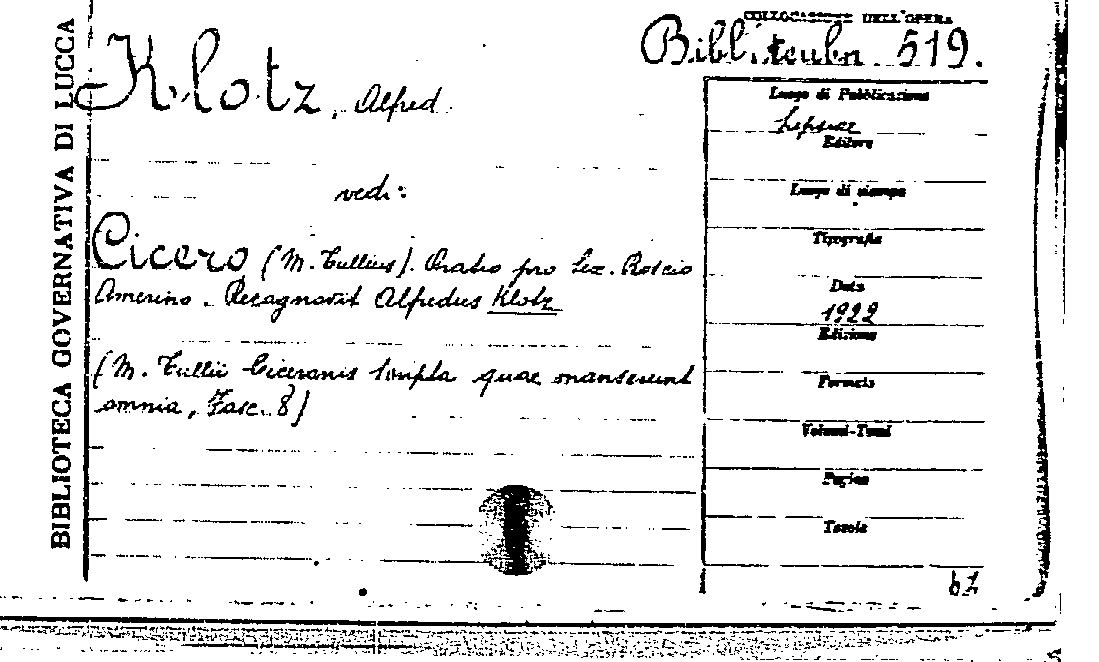 BIBLIOTECA GOVERNATIVA DI LUCCA
COLLOCAZIONE DELL'OPERA
Bibl. teubn. 519.
Klotz, Alfred.
vedi:
Cicero (M. Tullius). Oratio pro Sex. Roscio
Amerino. Recagnovit Alfredus Klotz
(M. Tullii Ciceronis scripta quae manserunt
omnia, Fasc. 8)
Luogo di Pubblicazione
Lipsiae
Editore
Luogo di stampa
Tipografia
Data
1922
Edizione
Formato
Volumi-Tomi
Pagine
Tavole